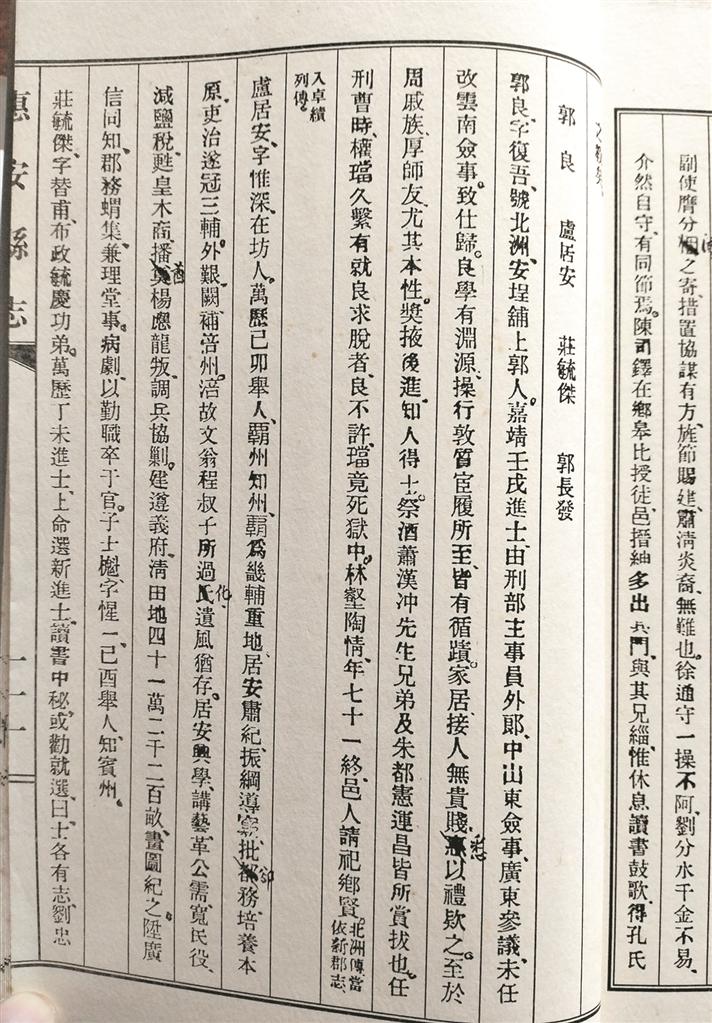 副使膺分之寄措置協謀有方、旌節賜建、肅清炎裔、無難也。徐通守一操不阿、劉分水千金不易、
介然自守、有同節焉。陳司鐸在鄉皋比授徒、邑搢紳多出其門、與其兄緇、惟休息讀書鼓歌、得孔氏
郭良　盧居安　莊毓傑　郭長發
郭良、字復吾、號北洲、安埕舖上郭人。嘉靖壬戌進士、由刑部主事員外郎、中山東僉事、廣東參議、未任
改雲南僉事。致仕歸。良學有淵源、操行敦質、宦履所至、皆有循蹟。家居接人無貴賤、悉以禮欵之。至於
周戚族、厚師友、尤其本性。奬掖後進、知人得士。祭酒蕭漢冲先生兄弟及朱都憲運昌皆所賞拔也。任
刑曹時、權璫久繫、有就良求脫者、良不許、璫竟死獄中。林壑陶情、年七十一終、邑人請祀鄉賢。北洲傳當依新郡志、
入卓績列傳。
盧居安、字惟深、在坊人。萬歷己卯舉人、霸州知州、霸爲畿輔重地、居安肅紀振綱、導窾批郤、務培養本
原。吏治遂冠三輔。外艱闋、補涪州。涪故文翁程叔子所過化、遺風猶存。居安興學、講藝、革公需、寬民役、
減鹽稅、甦皇木商。播酋楊應龍叛、調兵協剿。建遵義府、清田地四十一萬二千二百畝、畫圖紀之。陞廣
信同知、郡務蝟集、兼理堂事。病劇、以勤職卒于官。子士、字惺一、己酉舉人、知賓州。
莊毓傑、字替甫、布政毓慶功弟。萬歷丁未進士、上命選新進士、讀書中秘、或勸就選、曰、士各有志、劉忠
惠安縣志